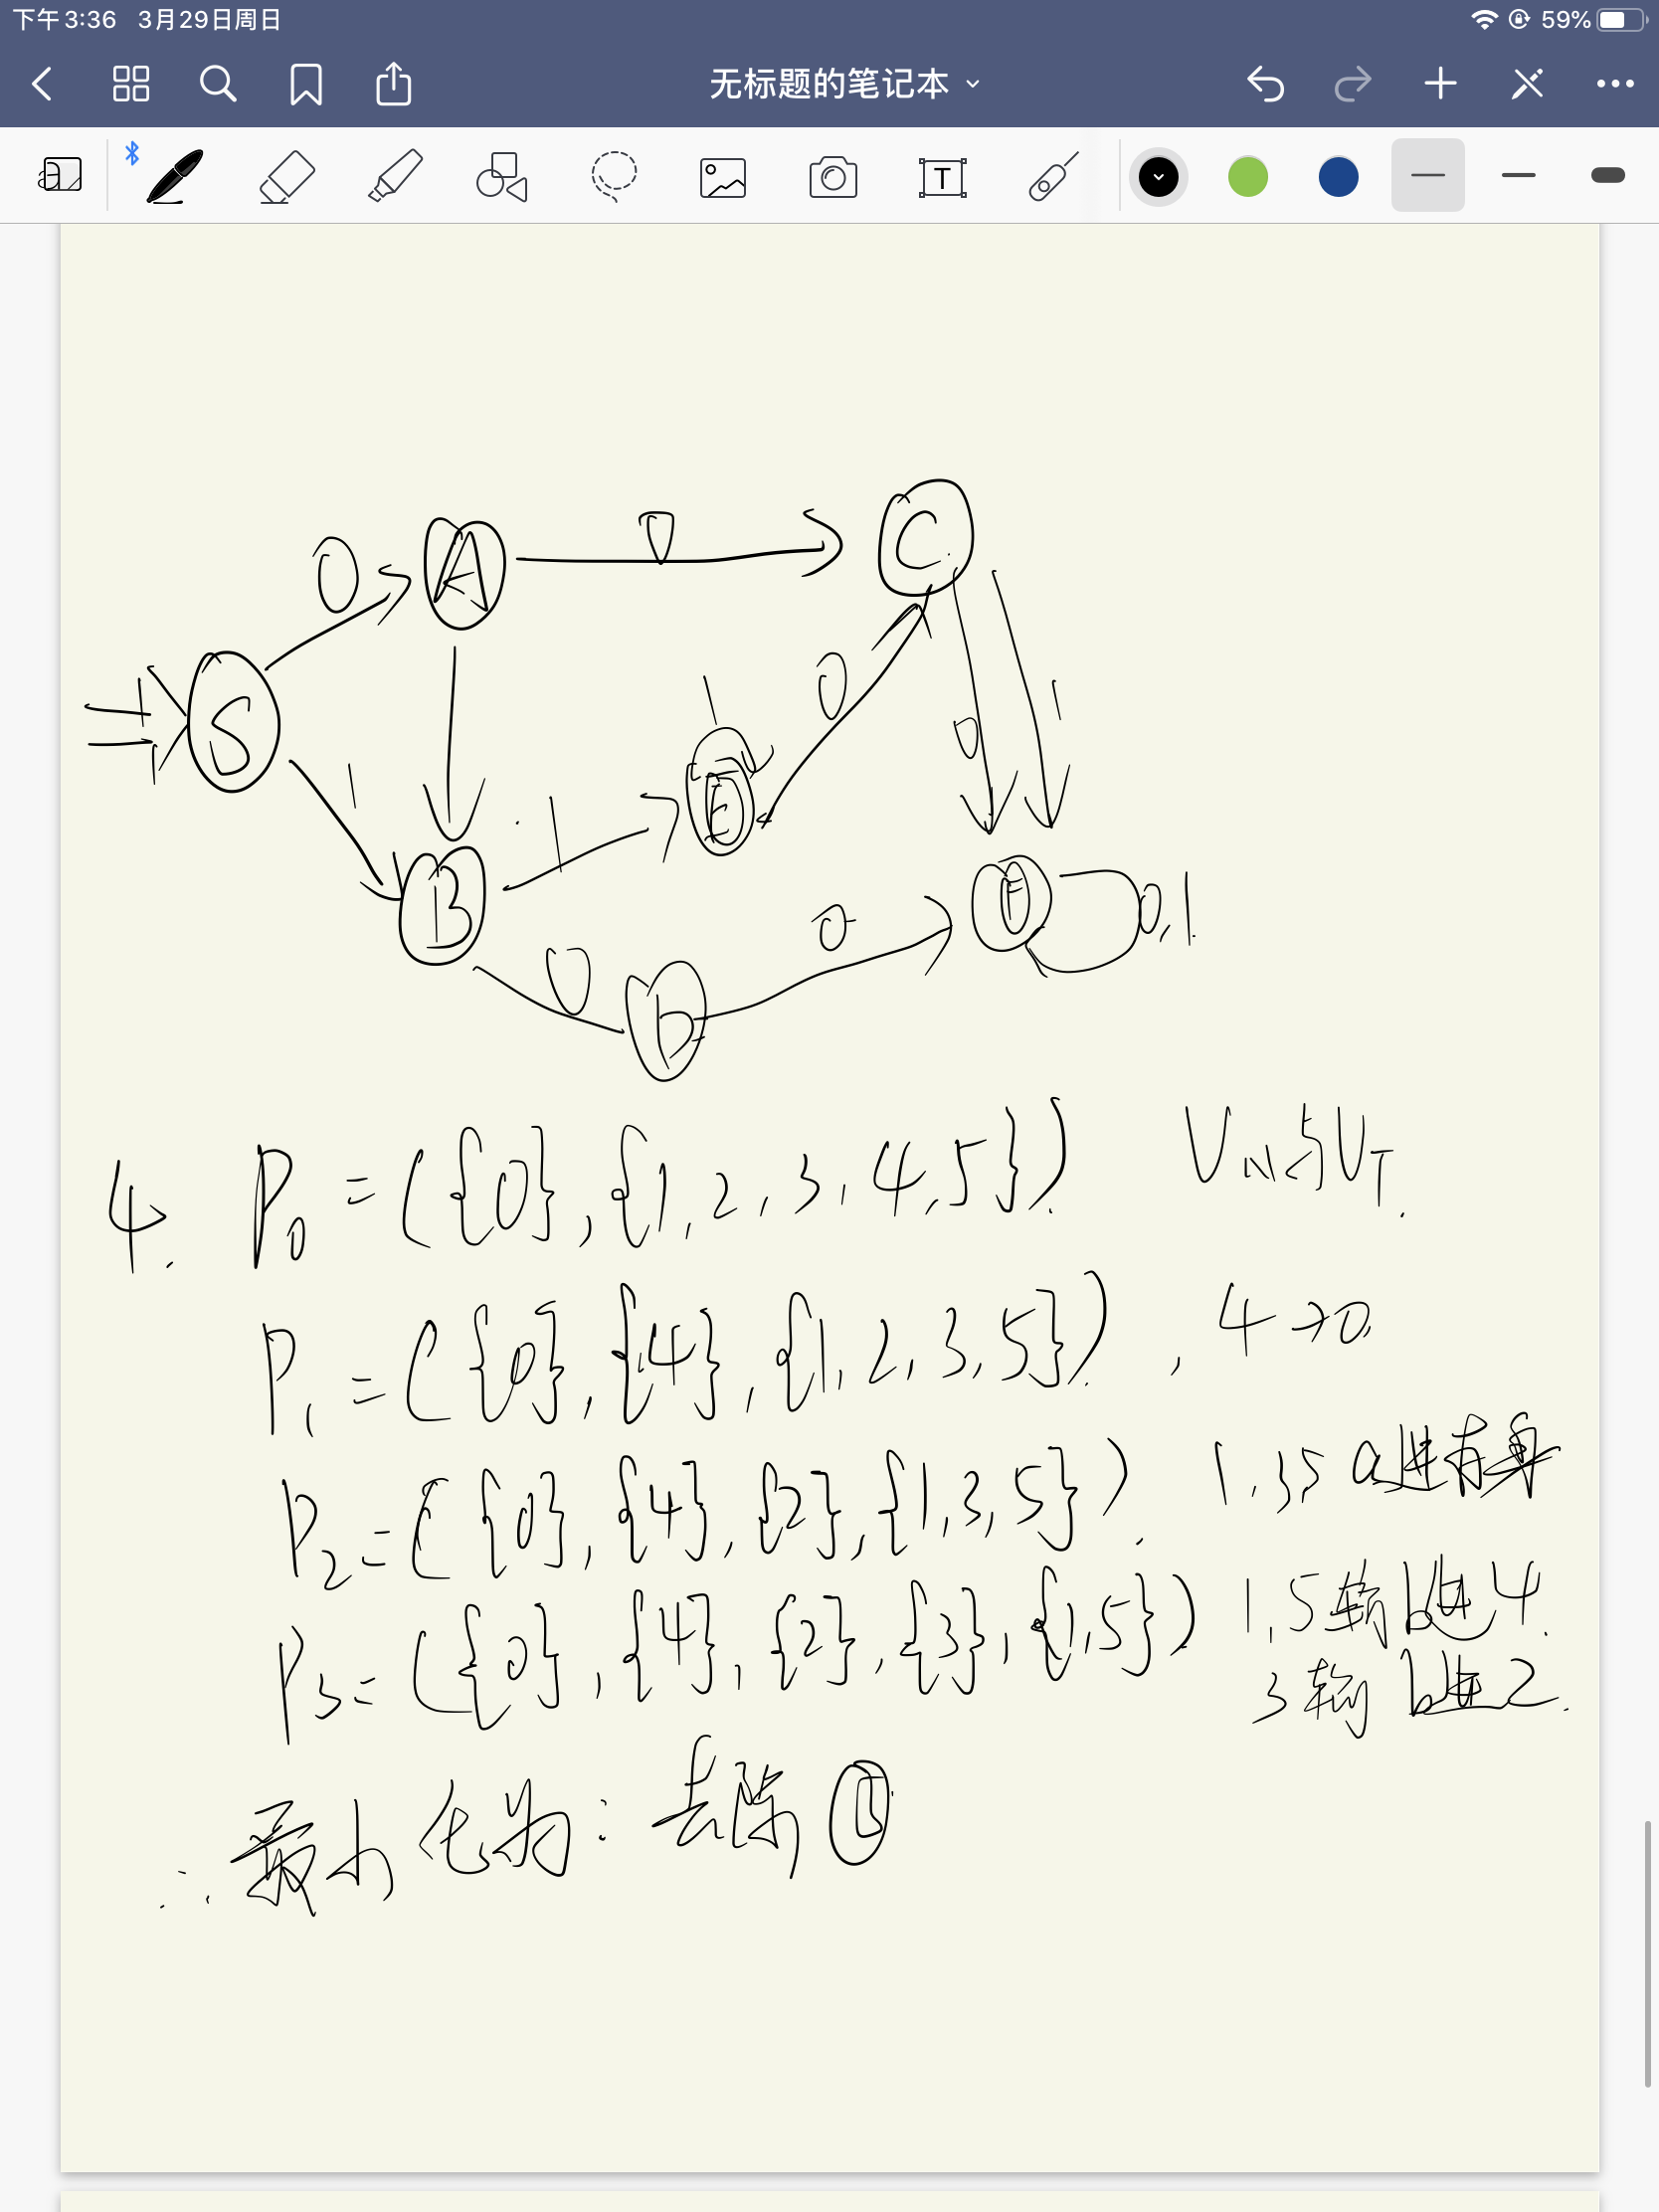 下午3:36 3月29日周日
59%
无标题的笔记本
T
0 A 0 C
S
1 1 0 0 1
B 1 E
0 0 F 0,1.
D
4. P0 = ({0}, {1, 2, 3, 4, 5}). VN与VT.
P1 = ({0}, {4}, {1, 2, 3, 5}). , 4→0
P2 = ({0}, {4}, {2}, {1, 3, 5}). 1,3,5 a进有
P3 = ({0}, {4}, {2}, {3}, {1, 5}) 1,5输b进4.
3输b进2.
∴ 最小化为: 去除